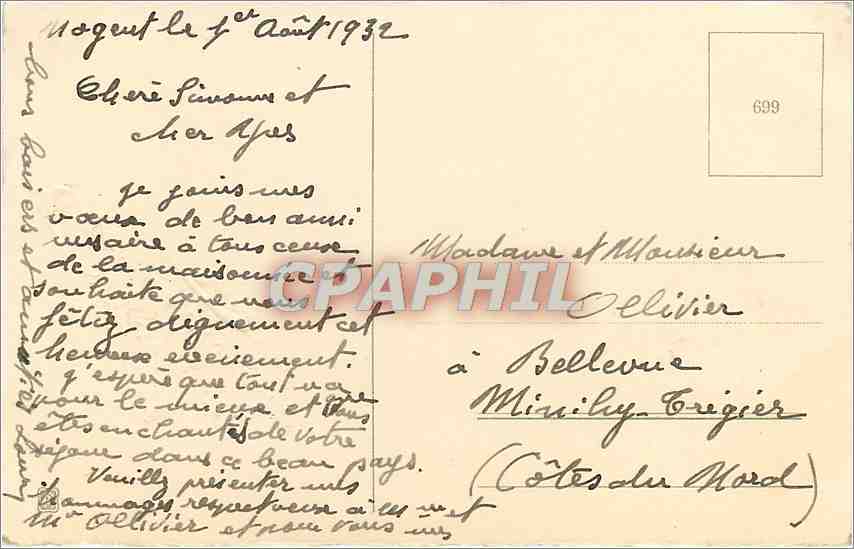 Nogent le 1er Août 1932
Chère Simonne et
cher Yves
je joins mes
vœux de bon anni
versaire à tous ceux
de la maisonnée et
souhaite que vous
fêtiez dignement cet
heureux evenement.
J'espère que tout va
pour le mieux et que vous
êtes enchantés de votre
séjour dans ce beau pays.
Veuillez présenter mes
hommages respectueux à M me et
Mr Ollivier et pour vous mes
bons baisers et amitiés
699
Madame et Monsieur
Ollivier
à Bellevue
Minihy-Trégier
(Côtes du Nord)
CPAPHIL